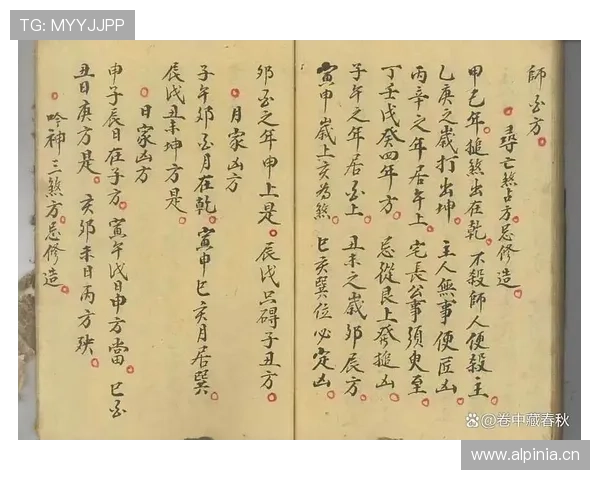 TG: MYYJJPP
師 方
尋亡煞占方忌修造
甲己年 煞出在乾 不殺師人便殺主
乙庚之歲打出坤 主人無事便匠凶
丙辛之年居午上 宅長公事須 至
丁壬戊癸四年方 忌從艮上發 凶
子午之年居 上 丑未之歲 辰方
寅申歲上亥為煞 巳亥巽位必定凶
之年申上是 辰戌只碍子丑方
月家凶方
子午 月在乾 寅申巳亥月居巽
辰戌丑未坤方是
日家凶方
申子辰日在子方 寅午戌日申方當 巳
丑日庚方是 亥 未日丙方殃
吟神三煞方忌修造
@卷中藏春秋
www.alpinia.cn